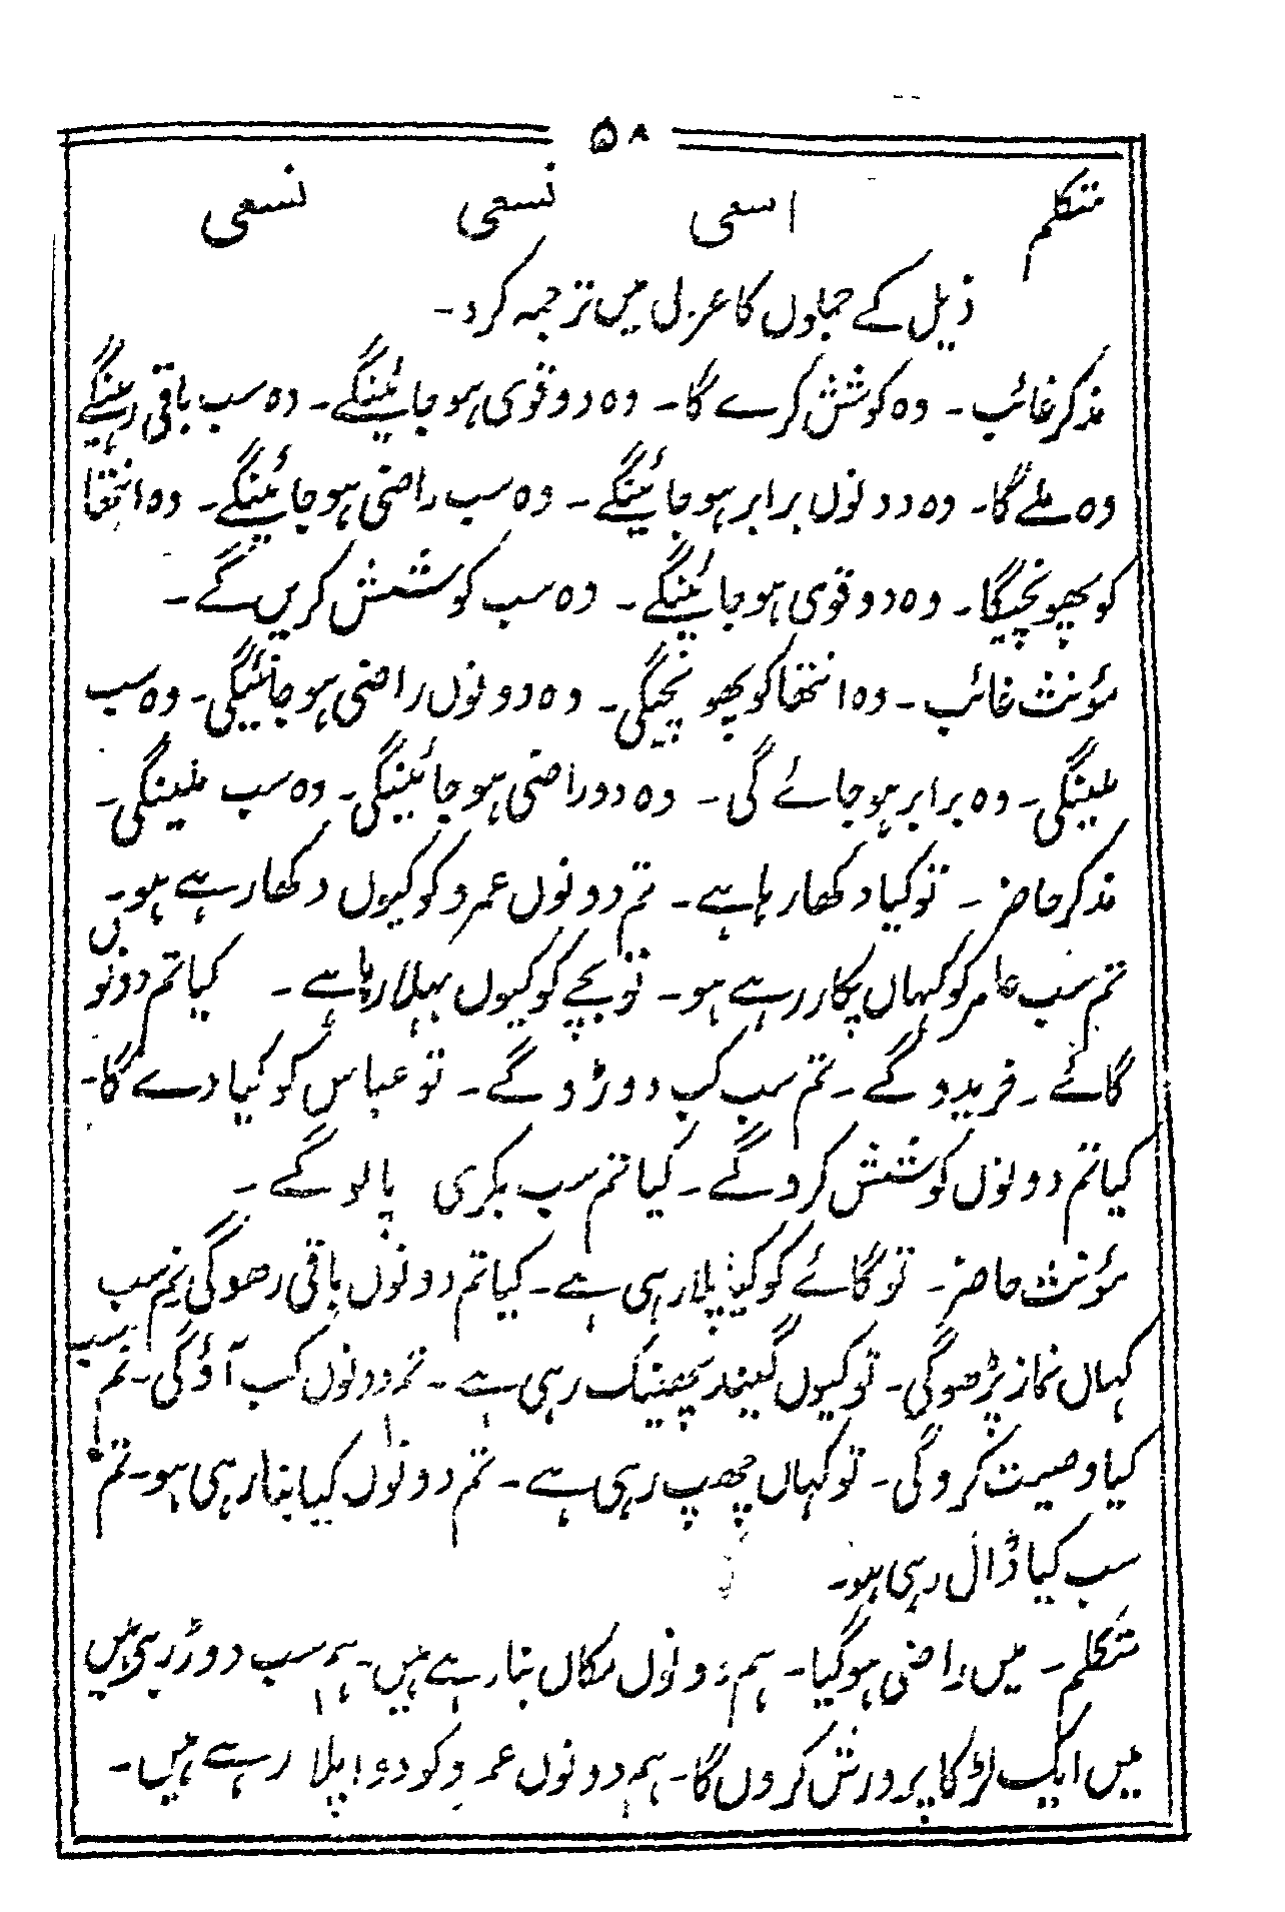 ۵۸
متکلم اسعی نسعی نسعی
ذیل کے جملوں کا عربی میں ترجمہ کرو۔
مذکر غائب ۔ وہ کوشش کرے گا۔ وہ دو قوی ہو جائینگے۔ وہ سب باقی رہینگے
وہ ملے گا۔ وہ دونوں برابر ہو جائینگے ۔ وہ سب راضی ہو جائینگے۔ وہ انتھا
کو پھونچیگا۔ وہ دو قوی ہو جائینگے ۔ وہ سب کوشش کریں گے ۔
مؤنث غائب ۔ وہ انتھا کو پھونچیگی۔ وہ دونوں راضی ہو جائینگی۔ وہ سب
ملینگی۔ وہ برابر ہو جائے گی ۔ وہ دو راضی ہو جائینگی۔ وہ سب ملینگی۔
مذکر حاضر ۔ تو کیا دکھا رہا ہے ۔ تم دونوں عمرو کو کیوں دکھا رہے ہو۔
تم سب عامر کو کہاں پکار رہے ہو۔ تو بچے کو کیوں بہلا رہا ہے ۔ کیا تم دونوں
گائے ۔ خریدو گے ۔ تم سب کب دوڑو گے ۔ تو عباس کو کیا دے گا۔
کیا تم دونوں کوشش کرو گے ۔ کیا تم سب بکری پالو گے ۔
مؤنث حاضر ۔ تو گائے کو کیا پلا رہی ہے ۔ کیا تم دونوں باقی رھوگی تم سب
کہاں نماز پڑھوگی۔ تو کیوں گیند پھینک رہی ہے ۔ تم دونوں کب آؤگی۔ تم سب
کیا وصیت کروگی۔ تو کہاں چھپ رہی ہے ۔ تم دونوں کیا بنا رہی ہو۔ تم
سب کیا ڈال رہی ہو۔
متکلم ۔ میں راضی ہو گیا۔ ہم دونوں مکان بنا رہے ہیں۔ ہم سب دوڑ رہی ہیں
میں ایک لڑکا پرورش کروں گا۔ ہم دونوں عمرو کو دوا پلا رہے ہیں ۔